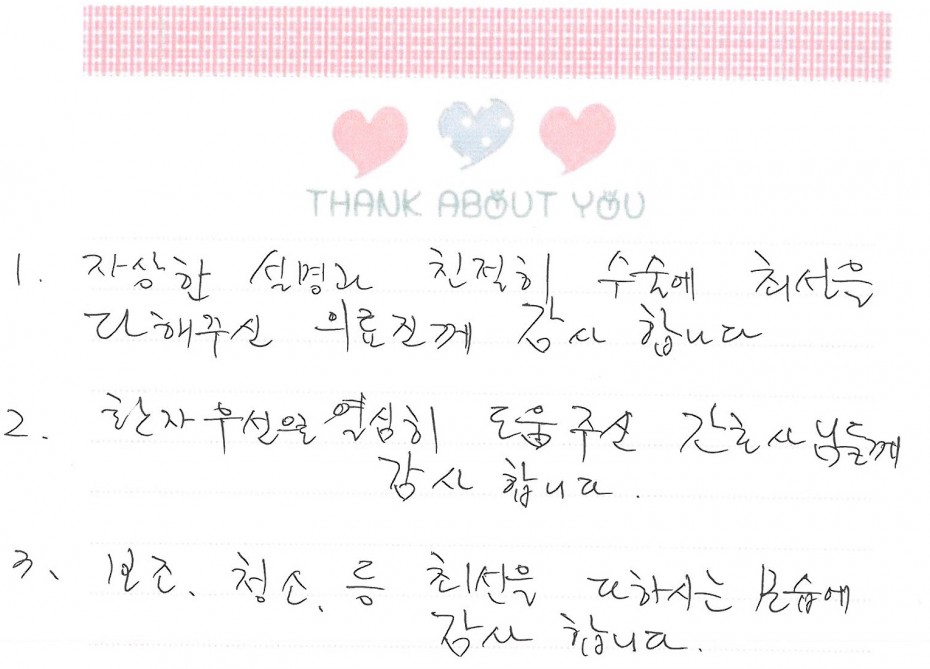 THANK ABOUT YOU
1. 자상한 설명과 친절히 수술에 최선을
다해주신 의료진께 감사 합니다
2. 환자우선을 열심히 도움주신 간호사님들께
감사 합니다.
3. 보조. 청소. 등 최선을 다하시는 모습에
감사 합니다.